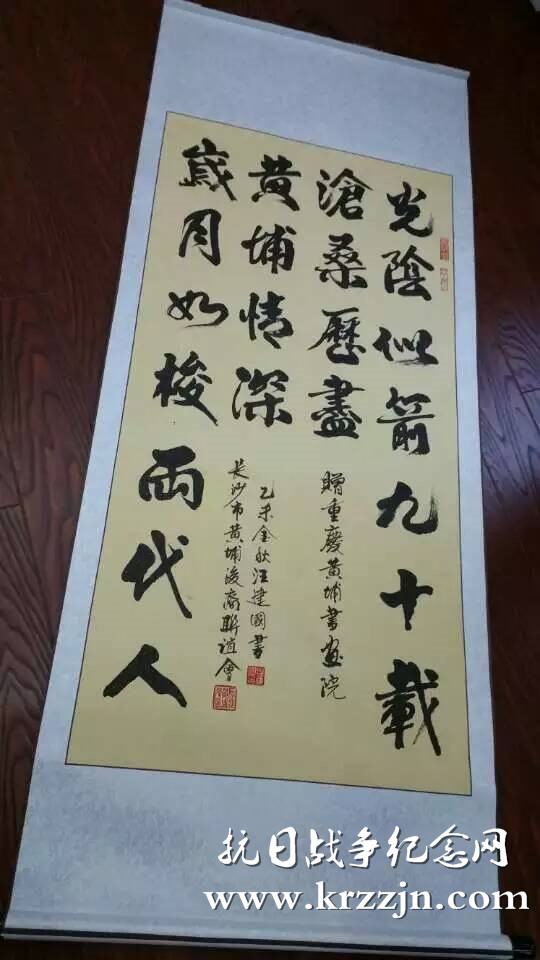 光陰似箭九十載
滄桑歷盡
黄埔情深
歲月如梭兩代人
贈重慶黄埔書畫院
乙未金秋汪建國書
長沙市黄埔後裔聯誼會
抗日战争纪念网
www.krzzjn.com